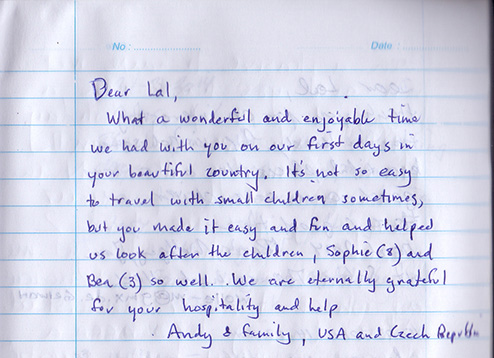 No : ............................ Date :
Dear Lal,
What a wonderful and enjoyable time
we had with you on our first days in
your beautiful country. It's not so easy
to travel with small children sometimes,
but you made it easy and fun and helped
us look after the children, Sophie (8) and
Ben (3) so well. We are eternally grateful
for your hospitality and help
Andy & family, USA and Czech Republic